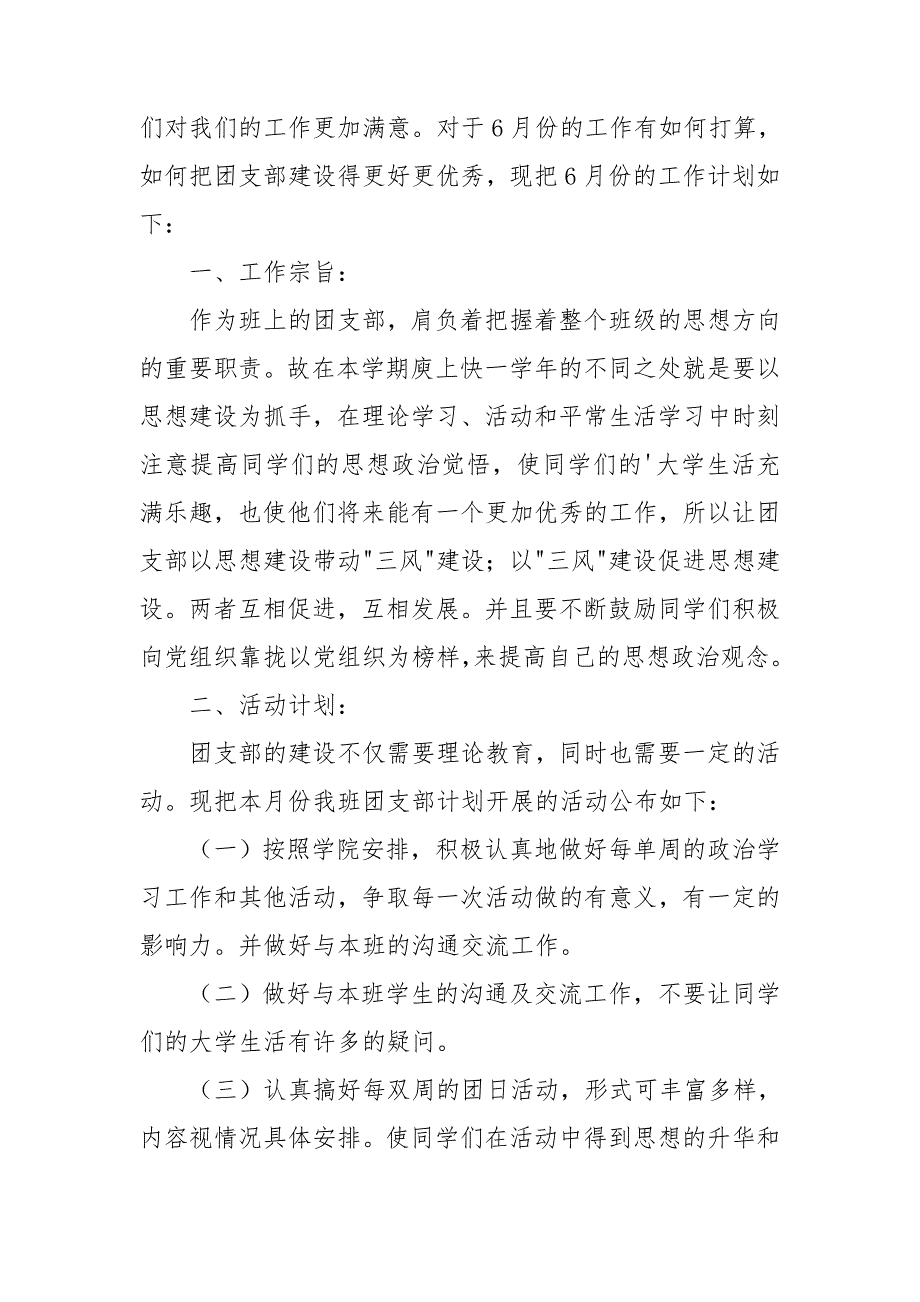 们对我们的工作更加满意。对于6月份的工作有如何打算，
如何把团支部建设得更好更优秀，现把6月份的工作计划如
下：
一、工作宗旨：
作为班上的团支部，肩负着把握着整个班级的思想方向
的重要职责。故在本学期庾上快一学年的不同之处就是要以
思想建设为抓手，在理论学习、活动和平常生活学习中时刻
注意提高同学们的思想政治觉悟，使同学们的'大学生活充
满乐趣，也使他们将来能有一个更加优秀的工作，所以让团
支部以思想建设带动"三风"建设；以"三风"建设促进思想建
设。两者互相促进，互相发展。并且要不断鼓励同学们积极
向党组织靠拢以党组织为榜样，来提高自己的思想政治观念。
二、活动计划：
团支部的建设不仅需要理论教育，同时也需要一定的活
动。现把本月份我班团支部计划开展的活动公布如下：
（一）按照学院安排，积极认真地做好每单周的政治学
习工作和其他活动，争取每一次活动做的有意义，有一定的
影响力。并做好与本班的沟通交流工作。
（二）做好与本班学生的沟通及交流工作，不要让同学
们的大学生活有许多的疑问。
（三）认真搞好每双周的团日活动，形式可丰富多样，
内容视情况具体安排。使同学们在活动中得到思想的升华和